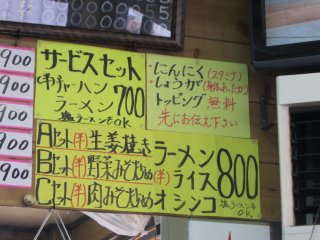 900
900
900
900
900
サービスセット
(半)チャーハン
ラーメン 700
塩ラーメンもOK
・にんにく(スタミナ)
・しょうが(身体あったか)
トッピング 無料
先にお伝え下さい
Aセット(半)生姜焼き
Bセット(半)野菜みそ炒め
Cセット(半)肉みそ炒め
ラーメン
(半)ライス 800
オシンコ
塩ラーメンも
OK